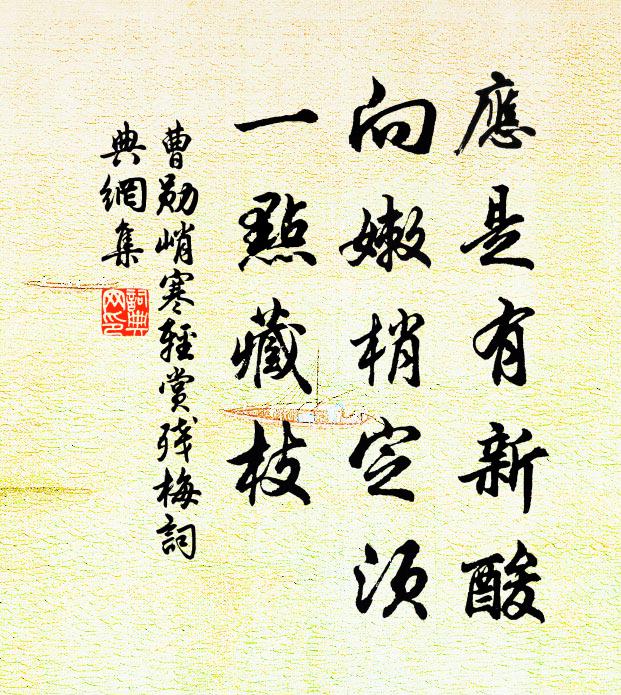 應是有新酸
向嫩梢定須
一點藏枝
曹勛峭寒輕賞殘梅詞
典網集
詞典網印